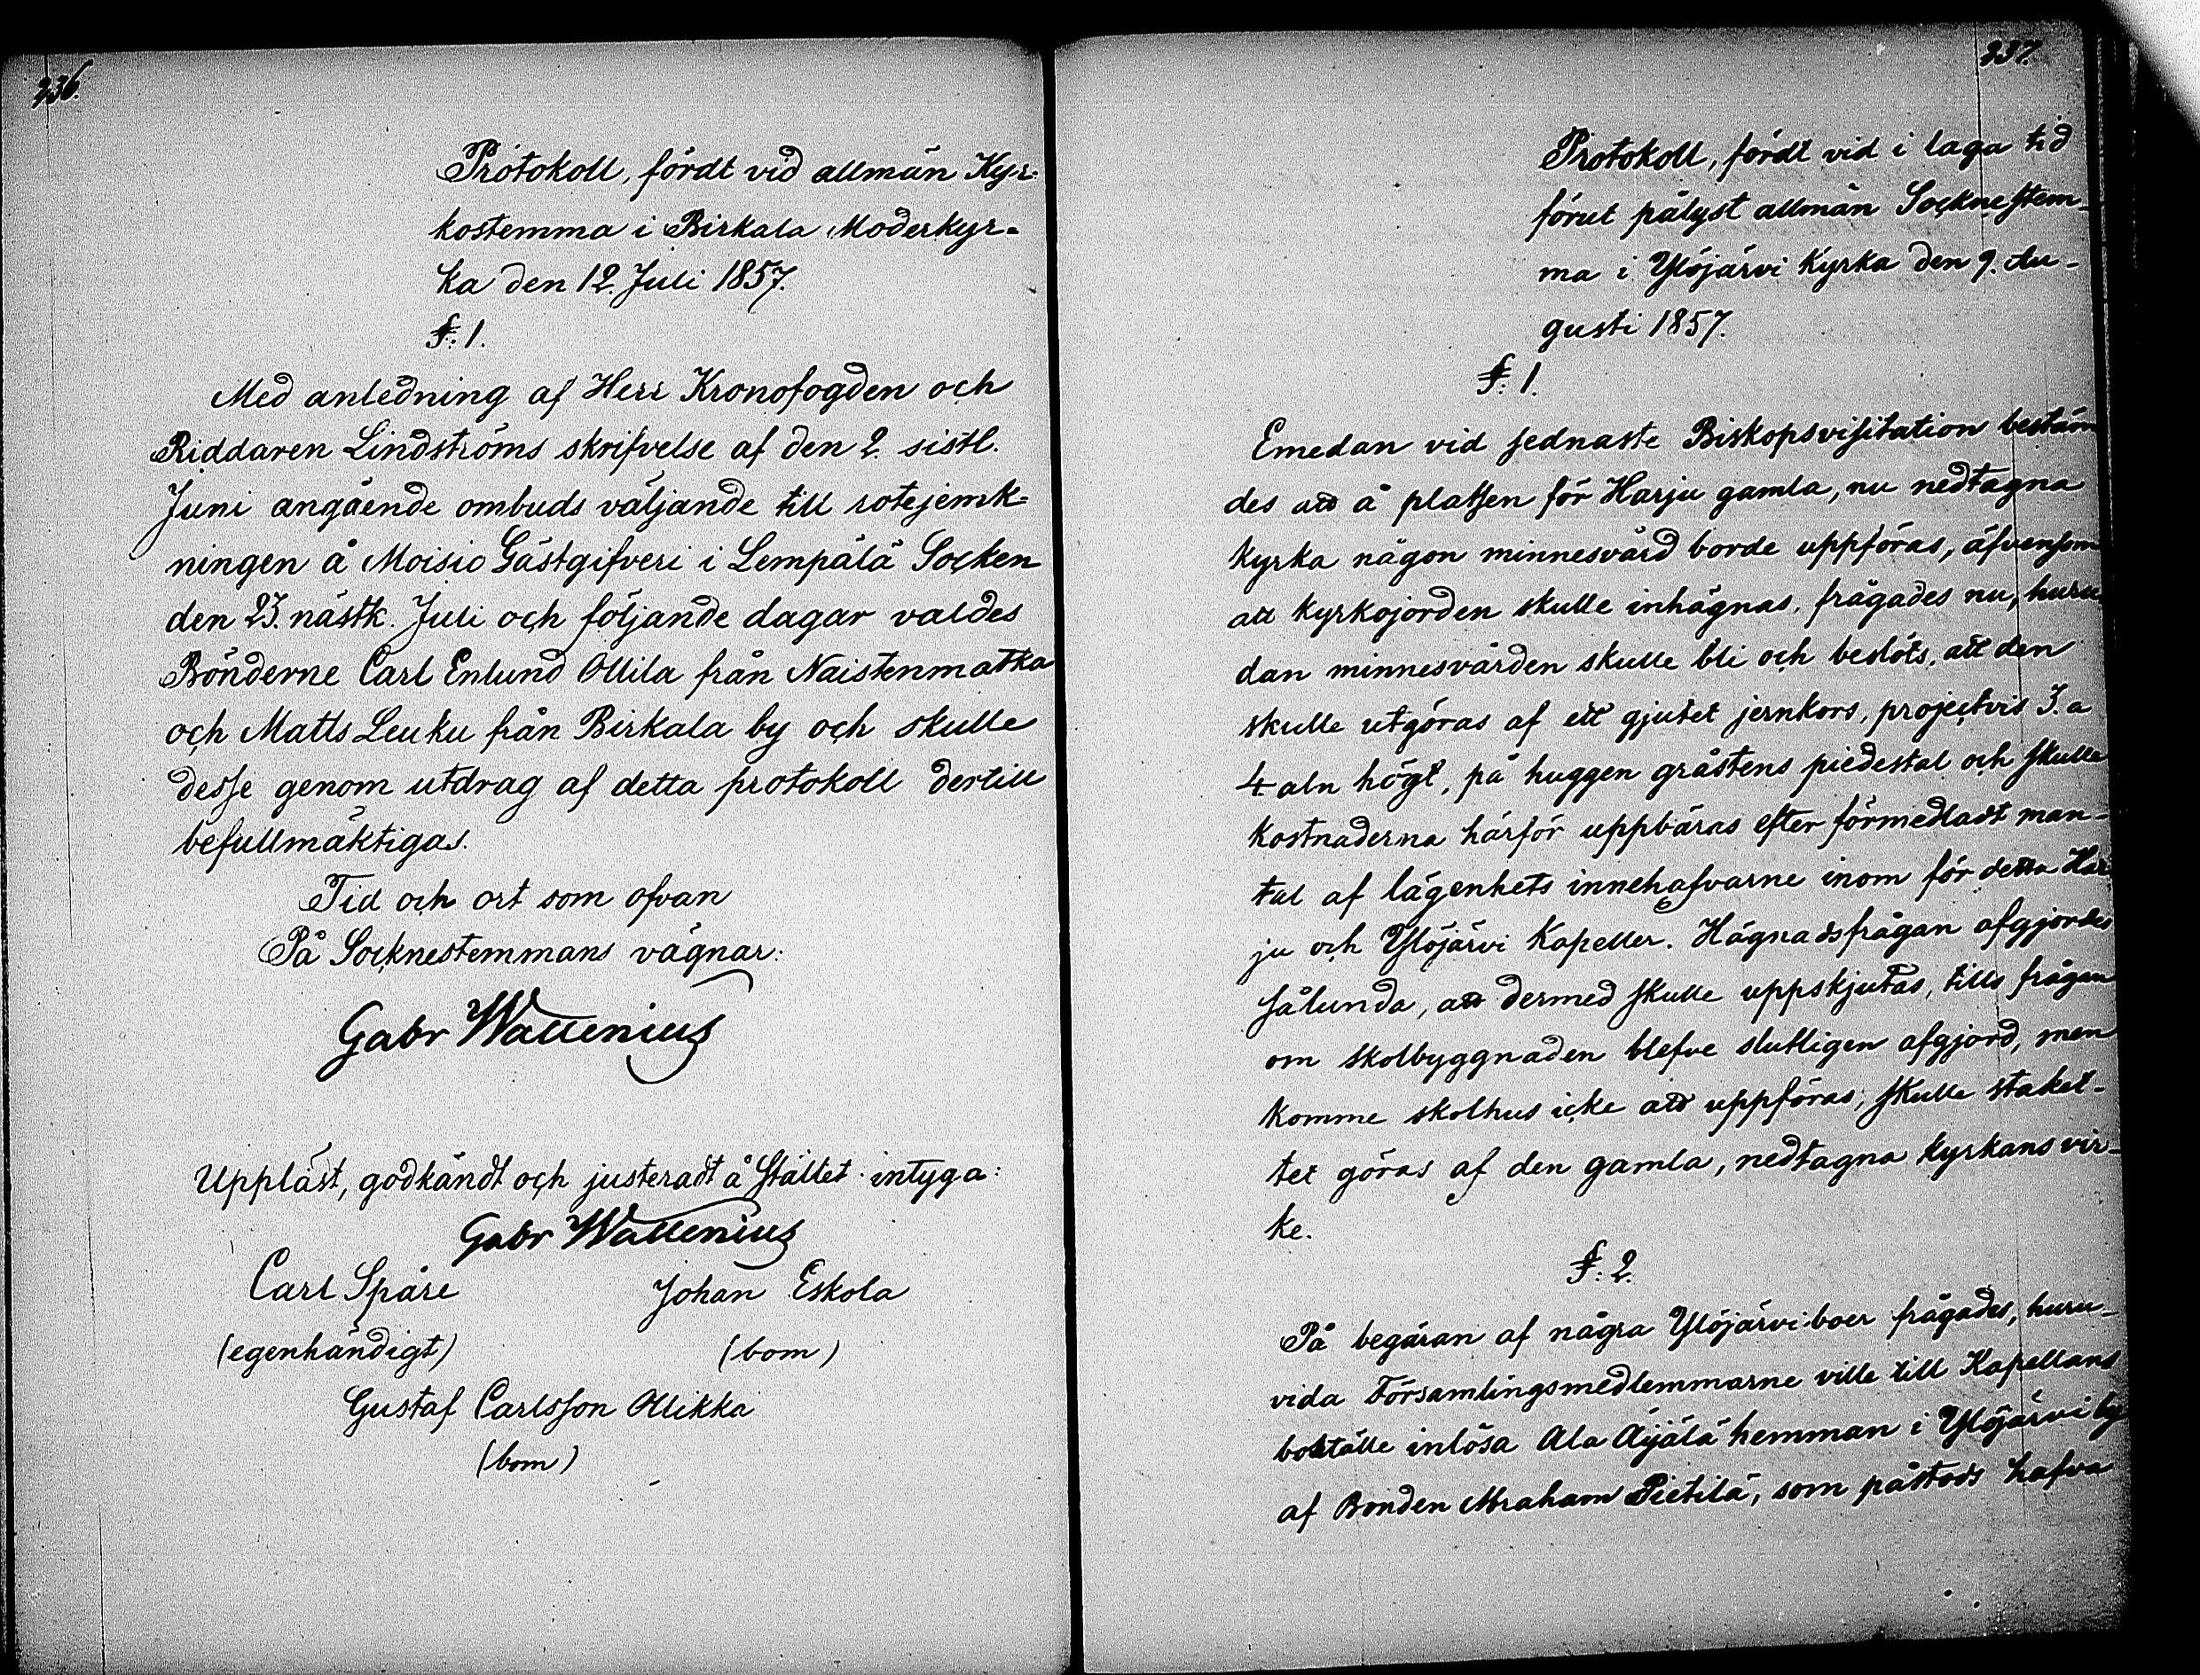 236.
Protokoll, fördt vid allmän Kyr-
kostemma i Birkala Moderkyr-
ka den 12. Juli 1857.
§. 1.
Med anledning af Herr Kronofogden och
Riddaren Lindströms skrifvelse af den 2. sistl.
Juni angående ombuds väljande till rotejemk-
ningen å Moisio Gästgifveri i Lempälä Socken
den 23. nästk. Juli och följande dagar valdes
Bönderne Carl Enlund Ollila från Naistenmatka
och Matts Leuku från Birkala by och skulle
desse genom utdrag af detta protokoll dertill
befullmäktigas.
Tid och ort som ofvan
På Socknestemmans vägnar:
Gabr Wallenius
Uppläst, godkändt och justeradt å stället intyga:
Gabr Wallenius
Carl Spåre Johan Eskola
(egenhändigt) (bom)
Gustaf Carlsson Ollikka
(bom)
237.
Protokoll, fördt vid i laga tid
förut pålyst allmän Socknestem-
ma i Ylöjärvi Kyrka den 9. Au-
gusti 1857.
§. 1.
Emedan vid sednaste Biskopsvisitation bestäm
des att å platsen för Harju gamla, nu nedtagna
kyrka någon minnesvård borde uppföras, äfvensom
att kyrkojorden skulle inhägnas, frågades nu, huru
dan minnesvården skulle bli och beslöts, att den
skulle utgöras af ett gjutet jernkors, projectvis 3. a
4 aln högt, på huggen gråstens piedestal och skulle
kostnaderna härför uppbäras efter förmedladt man-
tal af lägenhets innehafvarne inom för detta Har
ju och Ylöjärvi Kapeller. Hägnadsfrågan afgjordes
sålunda, att dermed skulle uppskjutas, tills frågan
om skolbyggnaden blefve slutligen afgjord, men
komme skolhus icke att uppföras, skulle staket-
tet göras af den gamla, nedtagna kyrkans vir-
ke.
§. 2.
På begäran af några Ylöjärvi-boer frågades, huru-
vida Församlingsmedlemmarne ville till Kapellans
boställe inlösa Ala Äijälä hemman i Ylöjärvi by
af Bonden Abraham Pietilä, som påstods hafva